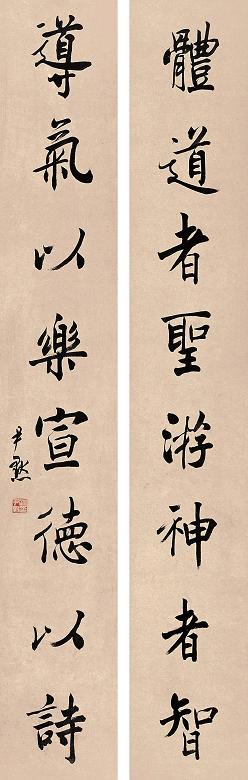 體道者聖游神者智
導氣以樂宣德以詩
尹默